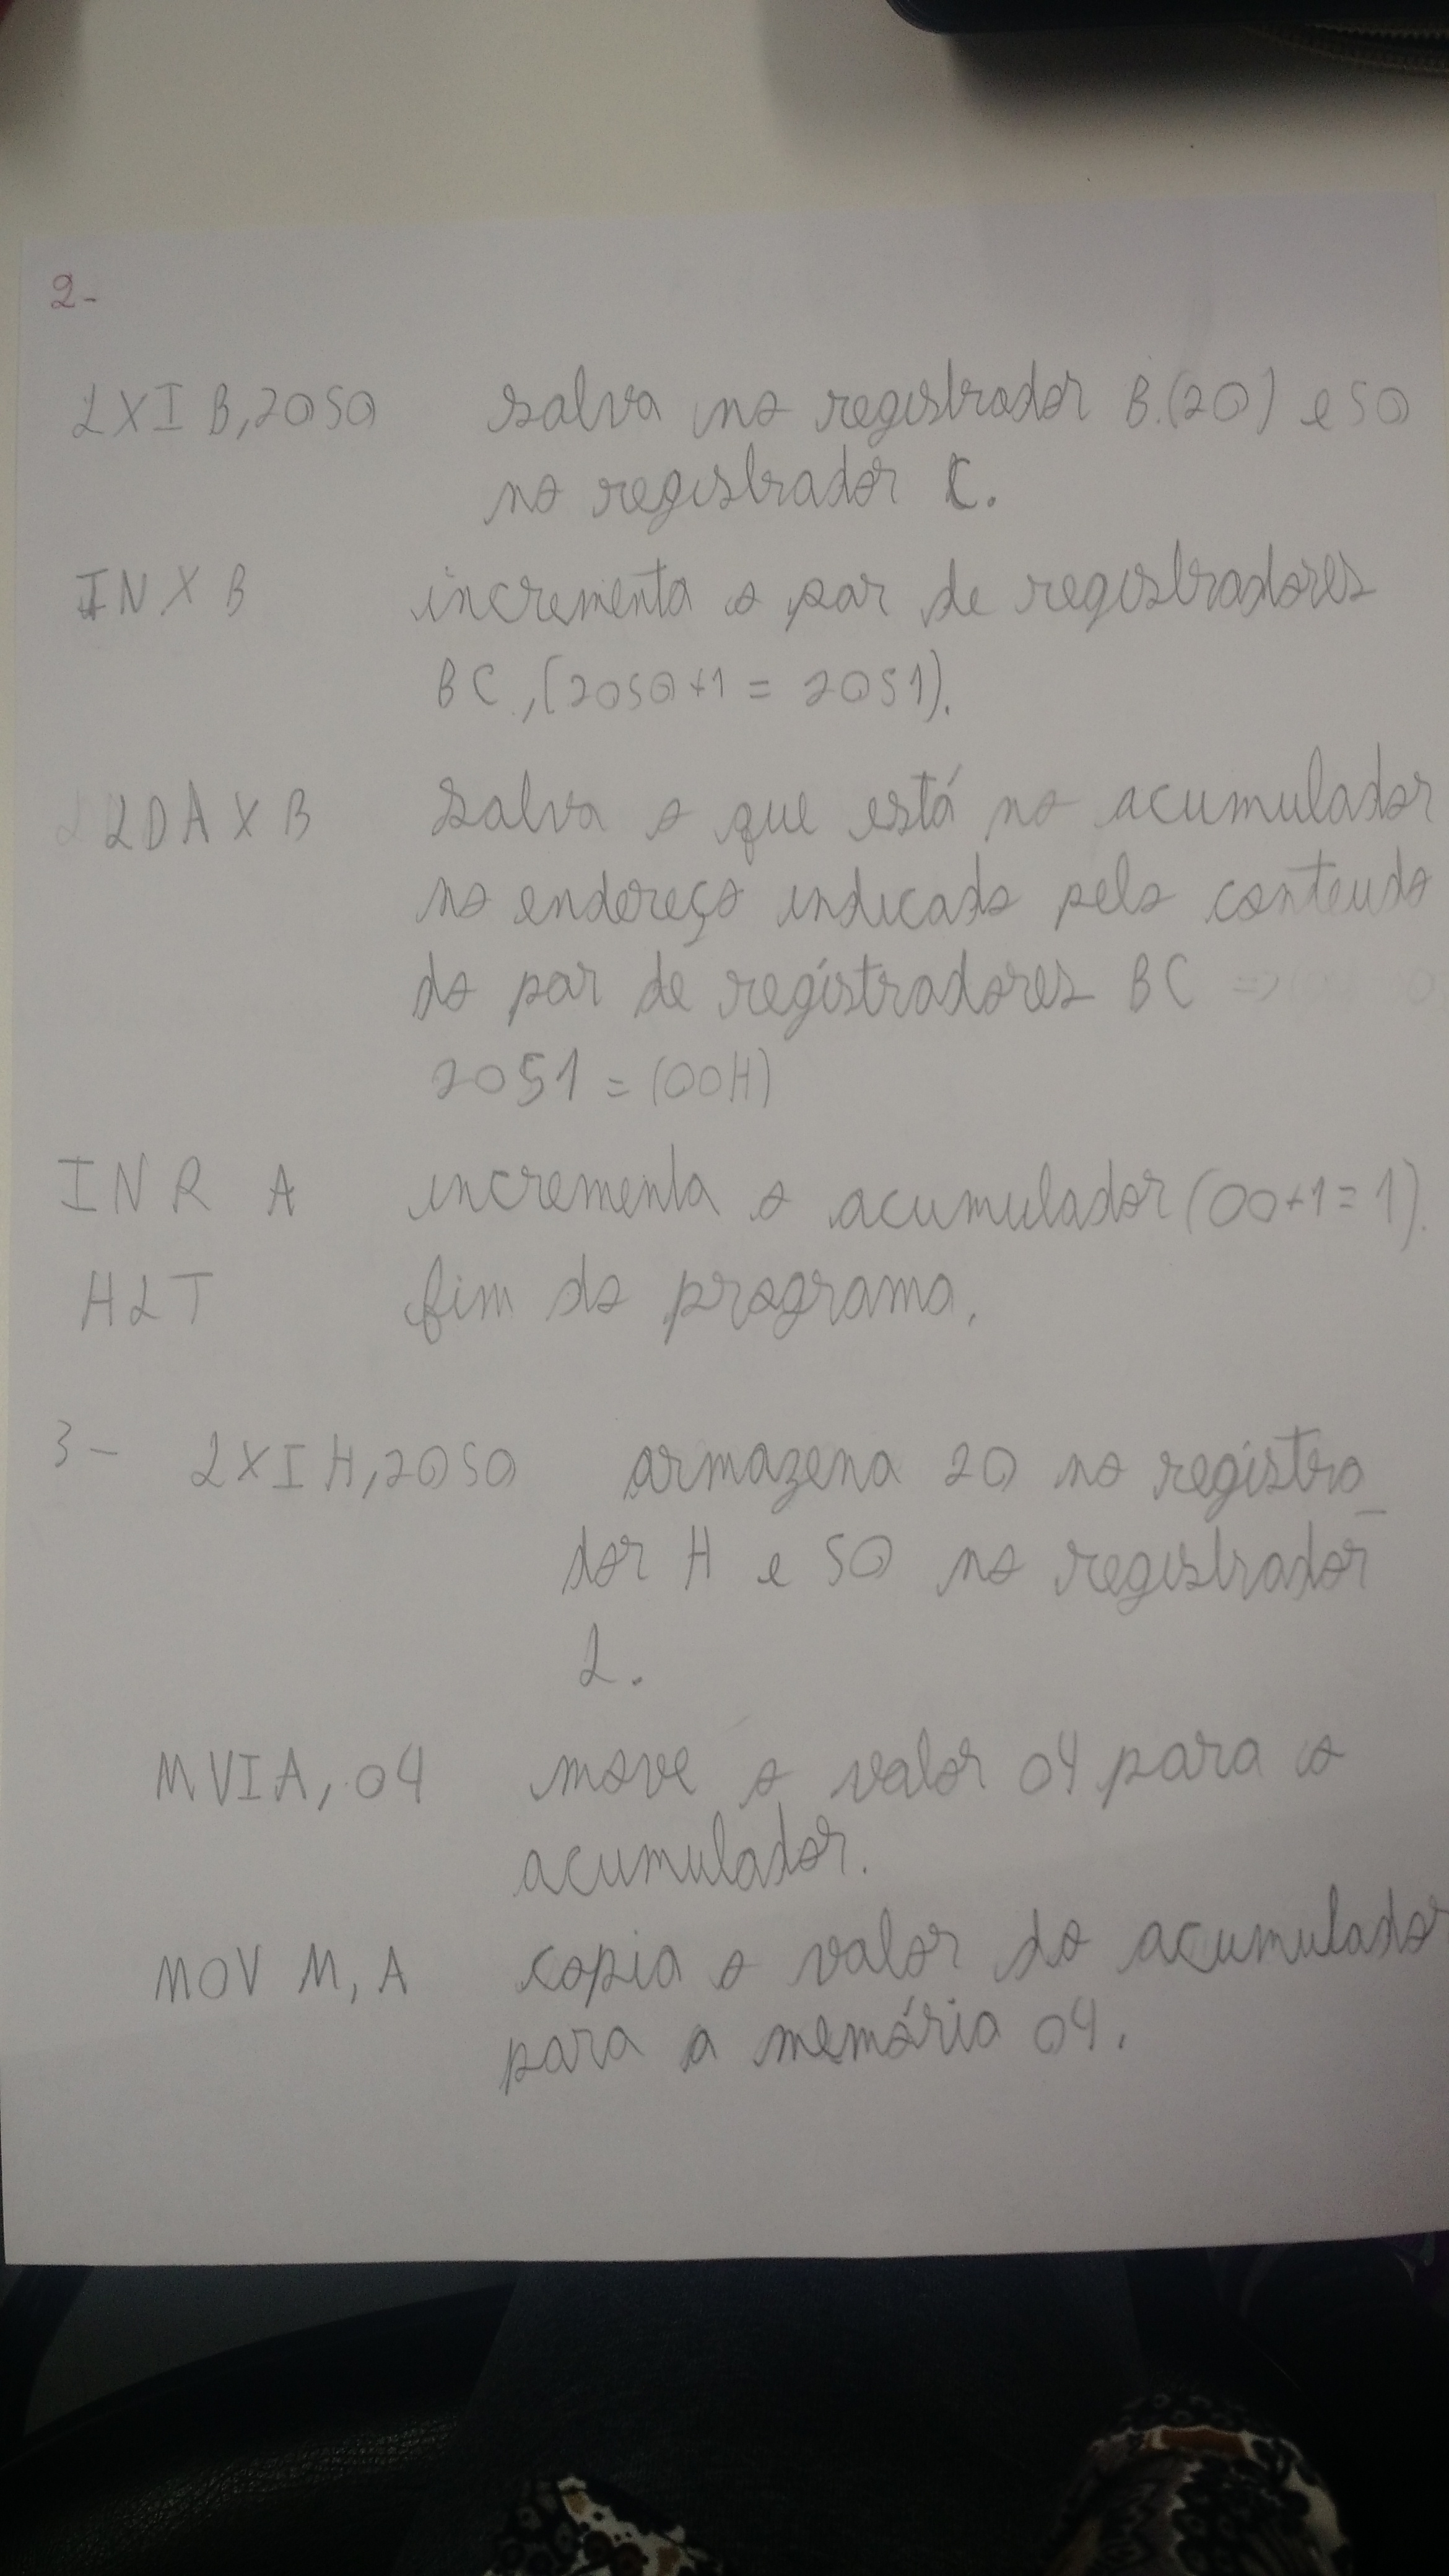 2-
LXI B,2050 salva no registrador B.(20) e 50
no registrador C.
INX B incrementa o par de registradores
BC,(2050+1 = 2051).
LDAX B salva o que está no acumulador
no endereço indicado pelo conteudo
do par de registradores BC =>
2051 = (00H)
INR A incrementa o acumulador (00+1=1).
HLT fim do programa.
3- LXI H,2050 armazena 20 no registra_
dor H e 50 no registrador
L.
MVI A, 04 move o valor 04 para o
acumulador.
MOV M, A copia o valor do acumulador
para a memória 04.